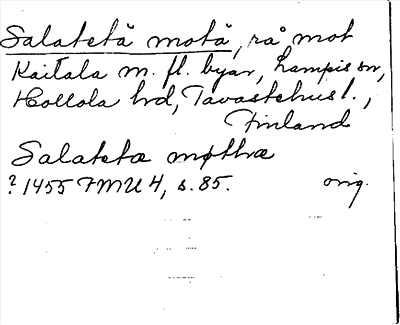 Salatetä motä, rå mot
Kaitala m. fl. byar, Lampis sn,
Hollola hd, Tavastehus l.,
Finland
Salatetæ møthæ
? 1455 FMU 4, s. 85. orig.